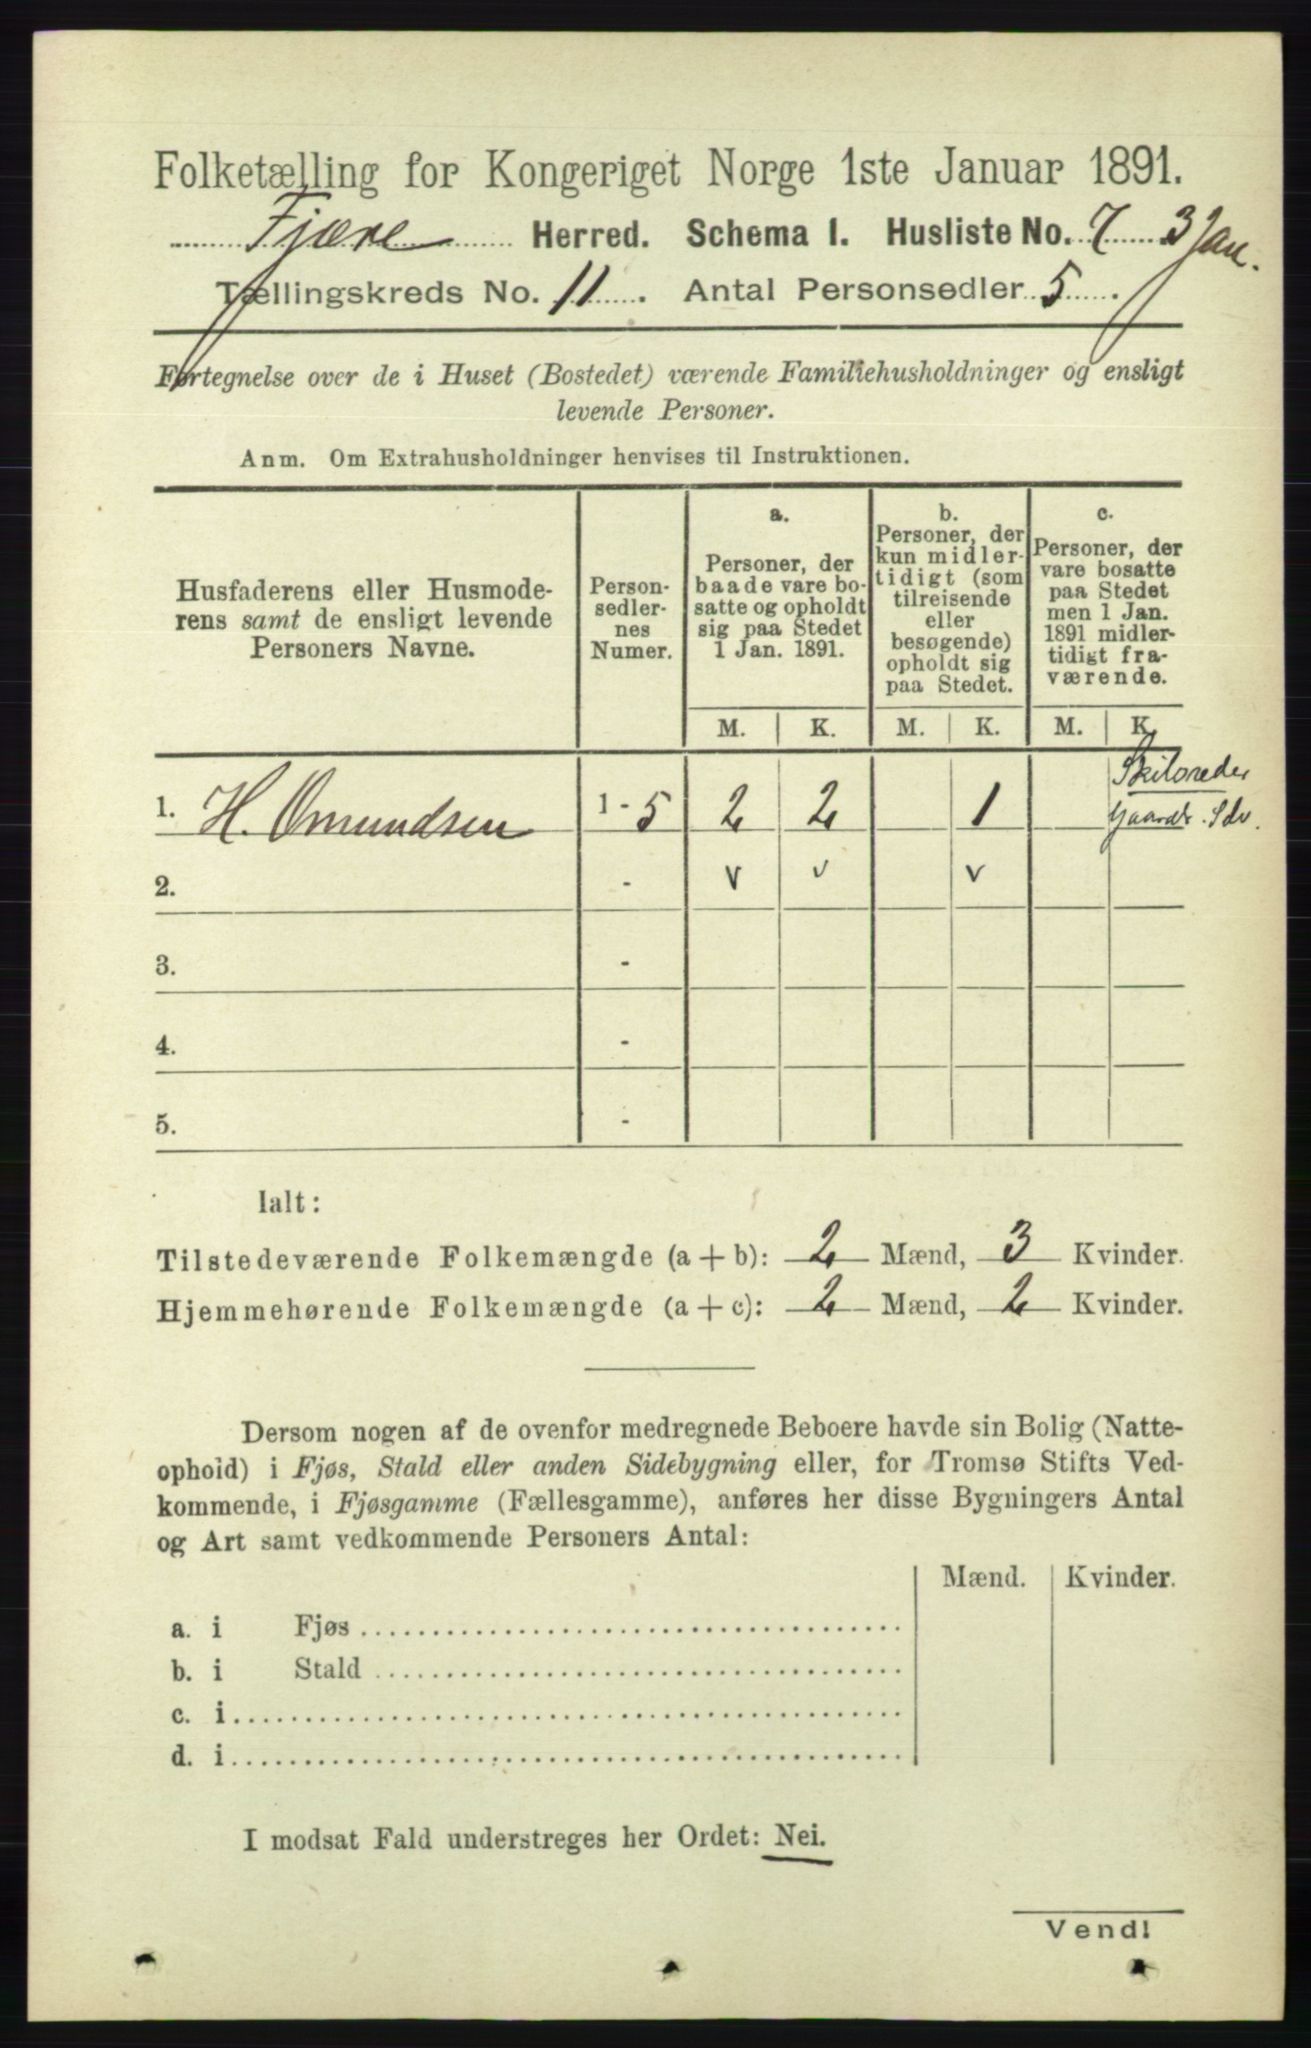 Folketælling for Kongeriget Norge 1ste Januar 1891.
Fjære Herred. Schema I. Husliste No. 7 3 Jan.
Tællingskreds No. 11. Antal Personsedler 5.
Fortegnelse over de i Huset (Bostedet) værende Familiehusholdninger og ensligt
levende Personer.
Anm. Om Extrahusholdninger henvises til Instruktionen.
Husfaderens eller Husmode-
rens samt de ensligt levende
Personers Navne.
Person-
sedler-
nes
Numer.
a.
Personer, der
baade vare bo-
satte og opholdt
sig paa Stedet
1 Jan. 1891.
b.
Personer, der
kun midler-
tidigt (som
tilreisende
eller
besøgende)
opholdt sig
paa Stedet.
c.
Personer, der
vare bosatte
paa Stedet
men 1 Jan.
1891 midler-
tidigt fra-
værende.
M. K. M. K. M. K.
Skibsreder
1. H. Omundsen 1 - 5 2 2 1 Gaardbr. Sdv.
2. - v v v
3. -
4. -
5. -
Ialt:
Tilstedeværende Folkemængde (a + b): 2 Mænd, 3 Kvinder.
Hjemmehørende Folkemængde (a + c): 2 Mænd, 2 Kvinder.
Dersom nogen af de ovenfor medregnede Beboere havde sin Bolig (Natte-
ophold) i Fjøs, Stald eller anden Sidebygning eller, for Tromsø Stifts Ved-
kommende, i Fjøsgamme (Fællesgamme), anføres her disse Bygningers Antal
og Art samt vedkommende Personers Antal:
Mænd. Kvinder.
a. i Fjøs
b. i Stald
c. i
d. i
I modsat Fald understreges her Ordet: Nei.
Vend!